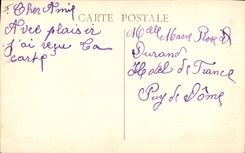 CARTE POSTALE
Cher Ami
Avec plaisir
j'ai reçu ta
carte
Melle Marie Rose
Durand
Hotel de France
Puy de Dôme